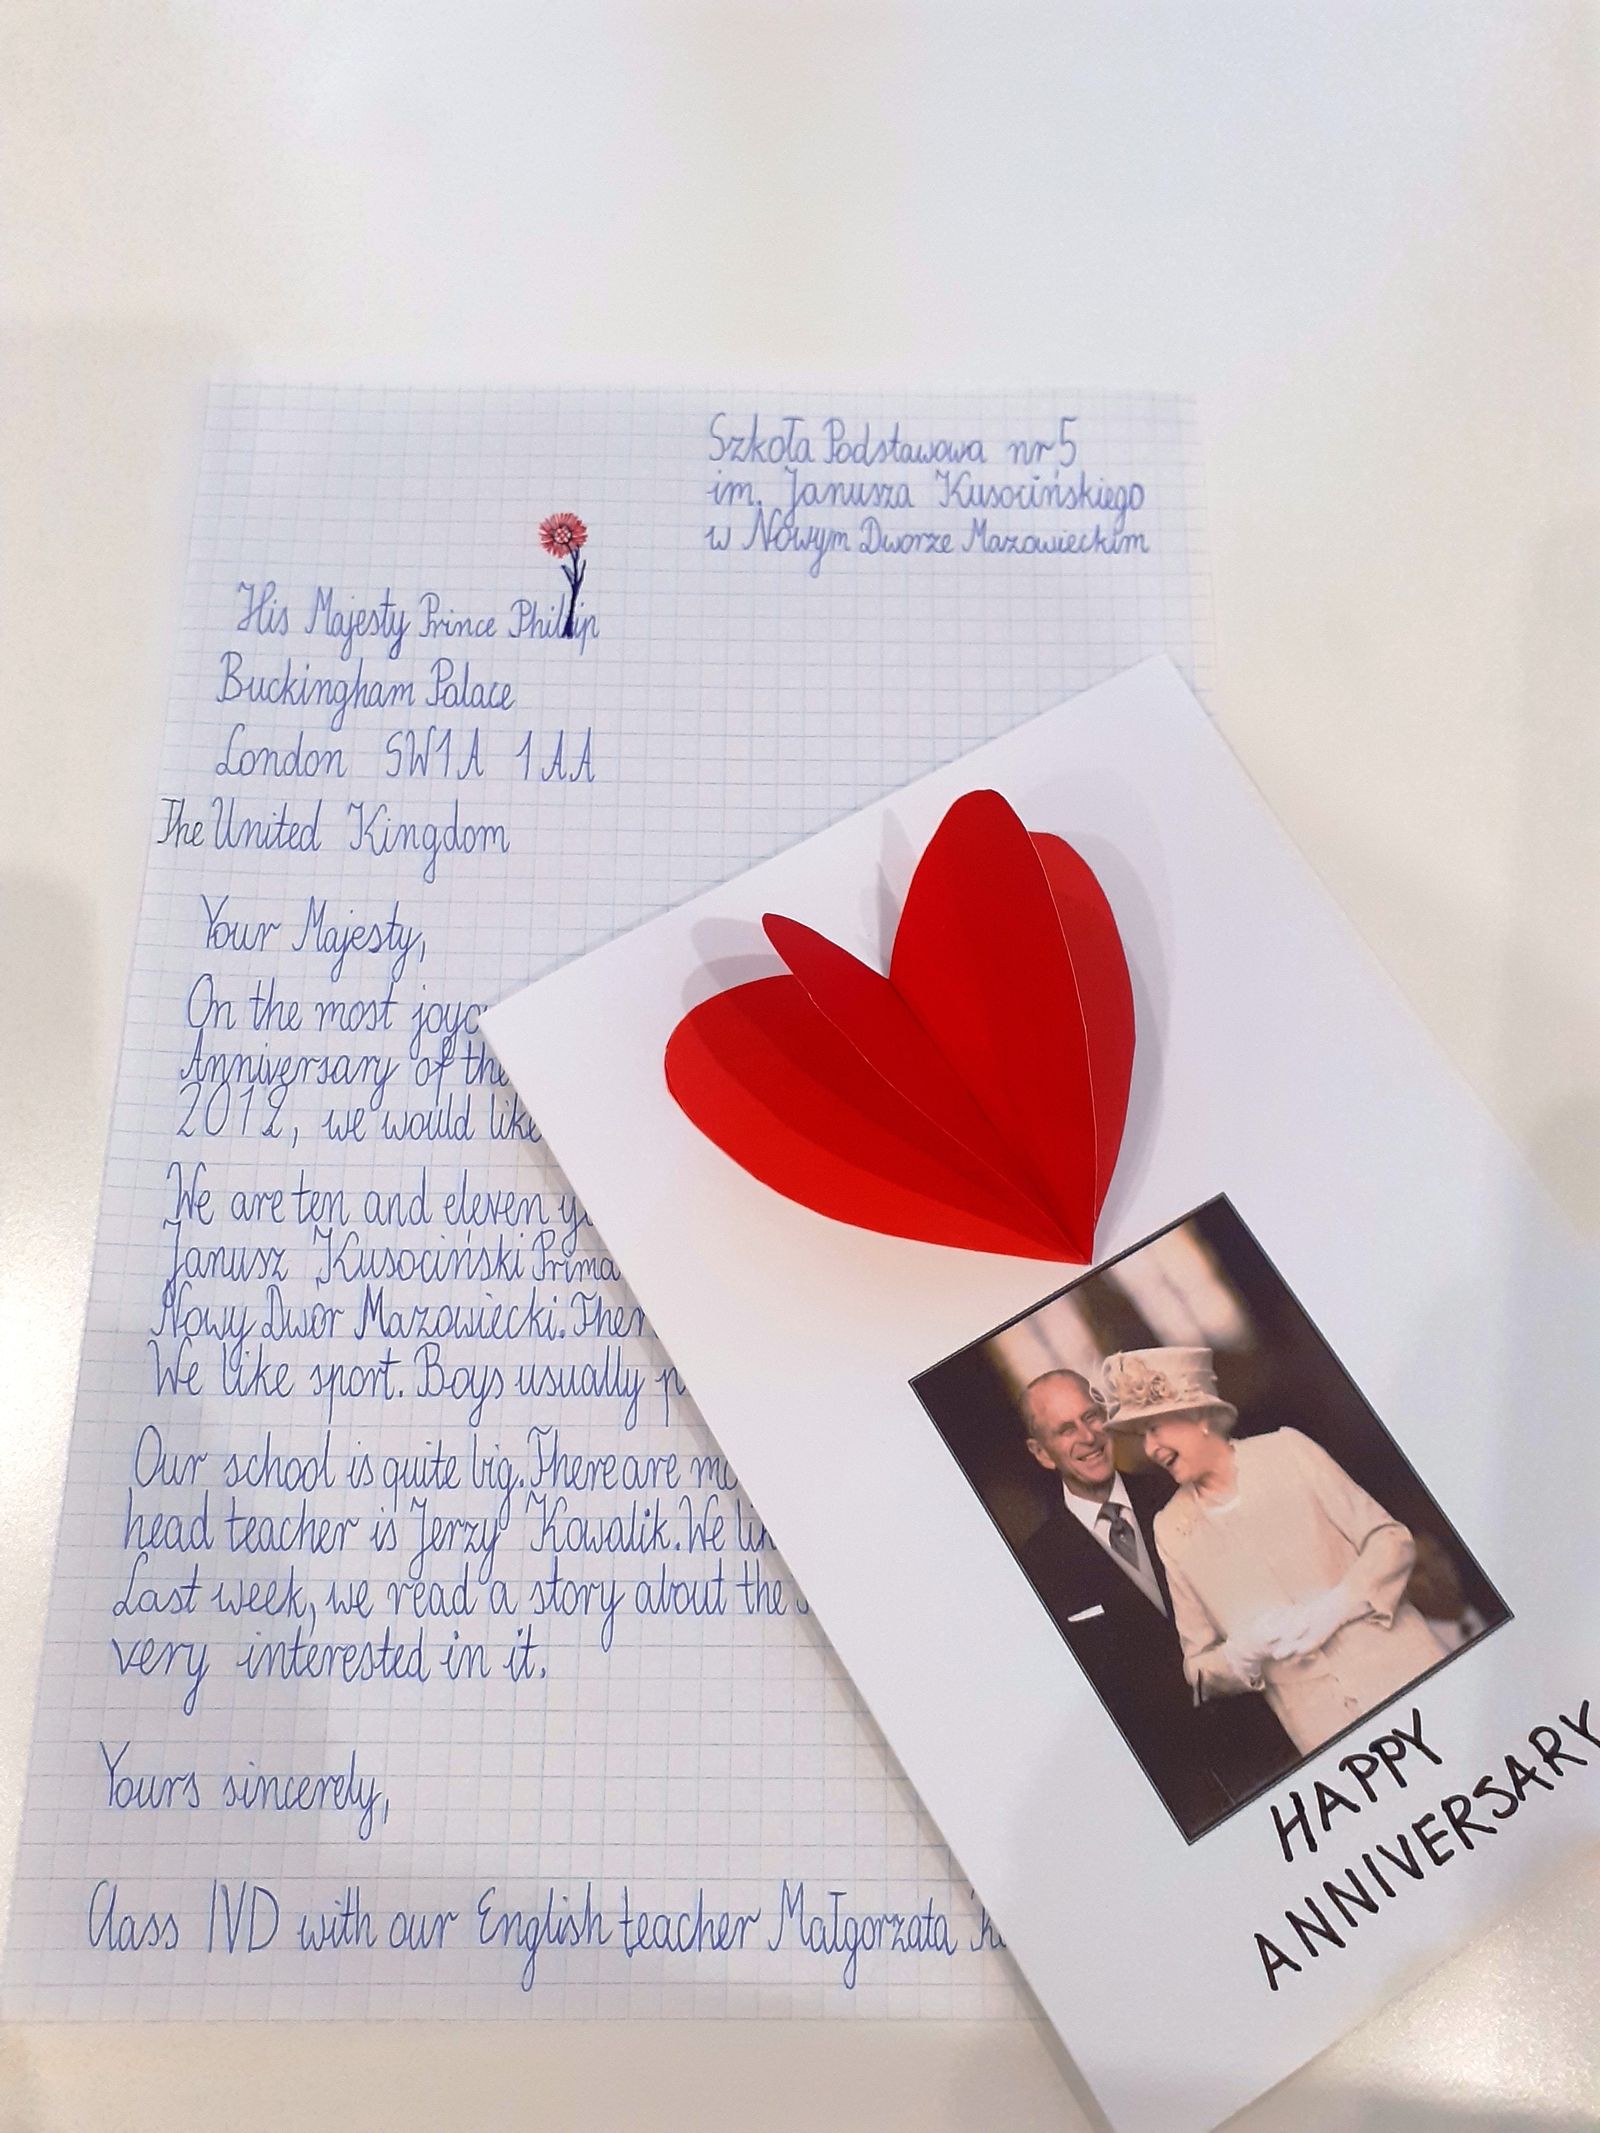 Szkoła Podstawowa nr 5
im. Janusza Kusocińskiego
w Nowym Dworze Mazowieckim
His Majesty Prince Phillip
Buckingham Palace
London SW1A 1AA
The United Kingdom
Your Majesty,
On the most
Anniversary of the
2012, we would like
We are ten and eleven
Janusz Kusociński
Nowy Dwór Mazowiecki.
We like sport. Boys usually
Our school is quite big. There are
head teacher is Jerzy Kowalik. We
Last week, we read a story about the
very interested in it.
Yours sincerely,
Class IVD with our English teacher Małgorzata
HAPPY
ANNIVERSARY